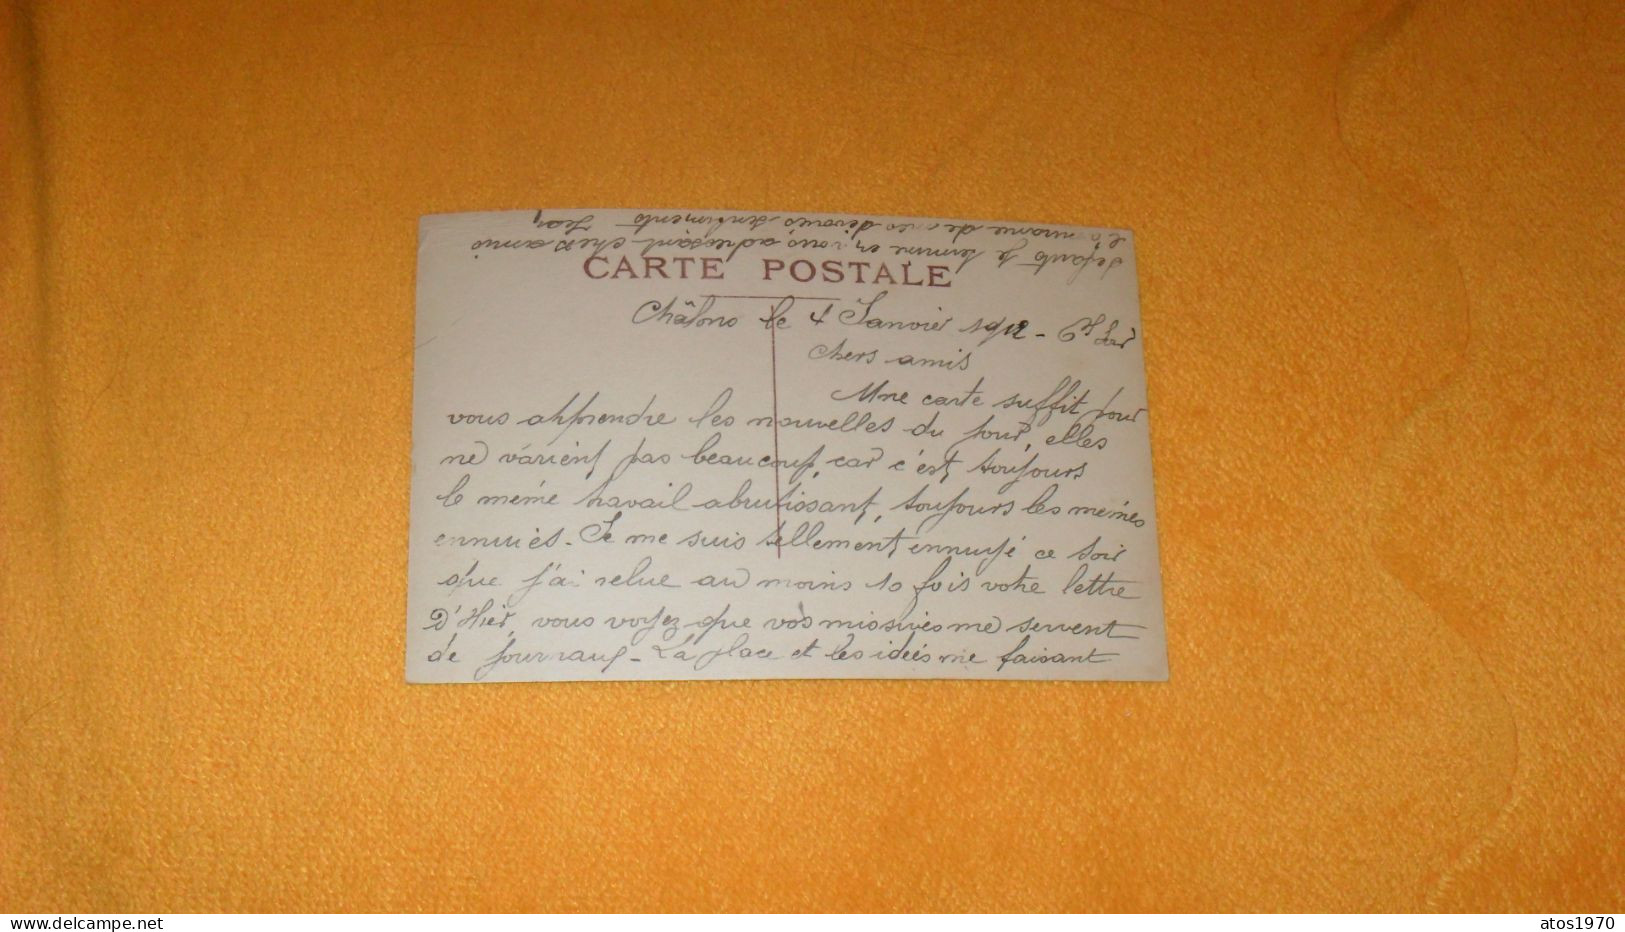 CARTE POSTALE
Châlons le 4 Janvier 1912 - 6h Soir
Chers amis
Une carte suffit pour
vous apprendre les nouvelles du jour, elles
ne varient pas beaucoup, car c'est toujours
le même travail abrutissant, toujours les mêmes
ennuiès. Je me suis tellement ennuyé ce soir
que j'ai relue au moins 10 fois votre lettre
D'Hier, vous voyez que vos missives me servent
de journaux - La place et les idées me faisant
défauts je termine en vous adressant chers amis
de mes dévoués sentiments Jean
atos1970